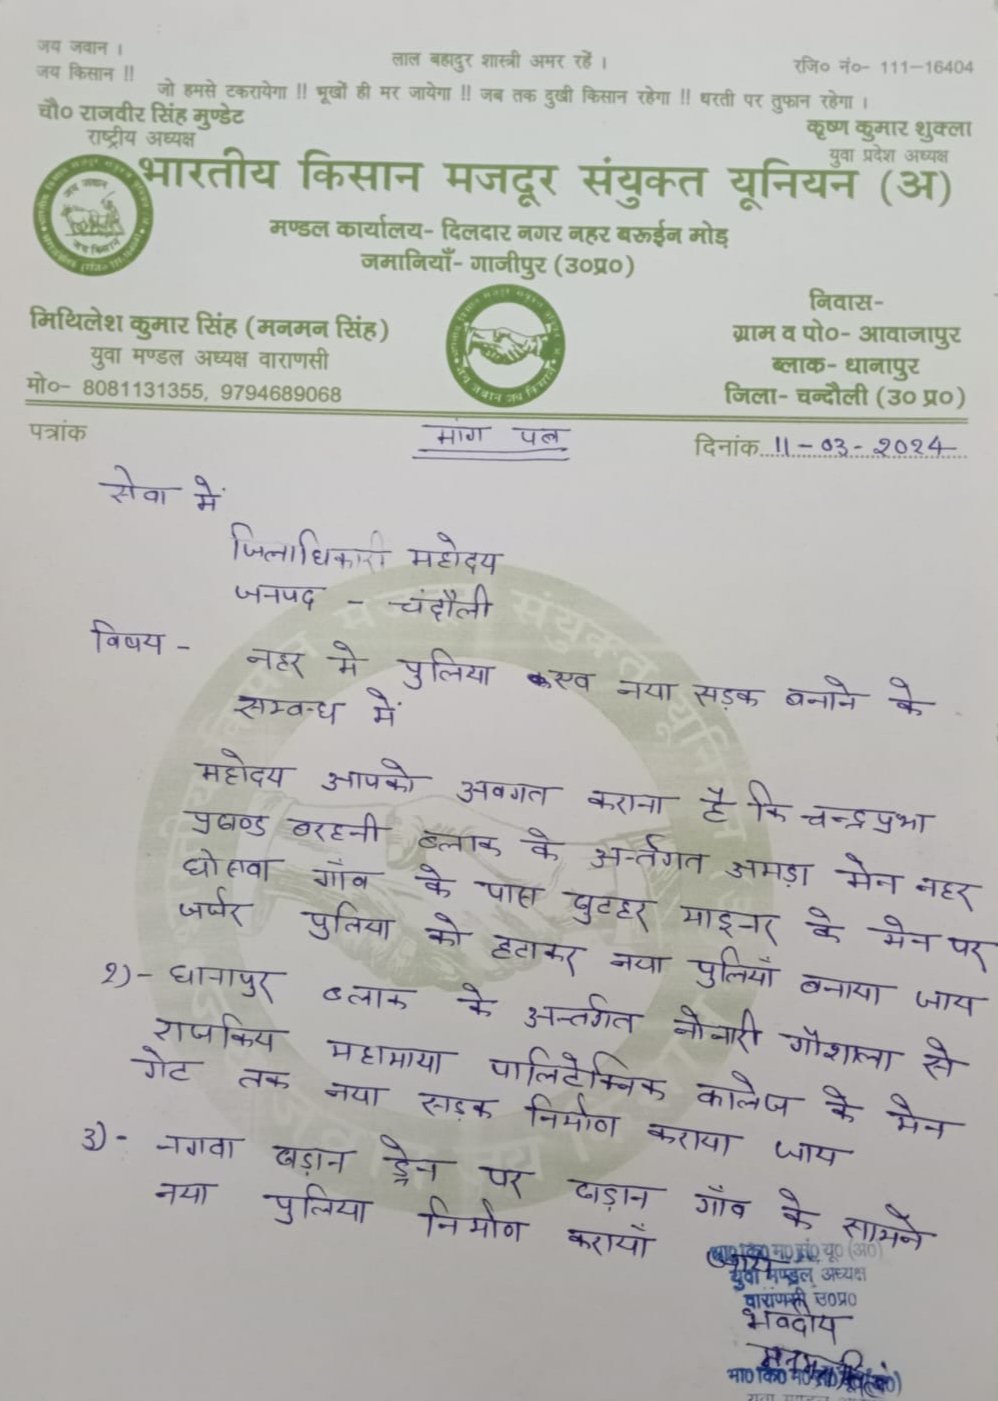 जय जवान ।
जय किसान !!
लाल बहादुर शास्त्री अमर रहें ।
रजि० नं०- 111-16404
जो हमसे टकरायेगा !! भूखों ही मर जायेगा !! जब तक दुखी किसान रहेगा !! धरती पर तुफान रहेगा ।
चौ० राजवीर सिंह मुण्डेट
राष्ट्रीय अध्यक्ष
कृष्ण कुमार शुक्ला
युवा प्रदेश अध्यक्ष
भारतीय किसान मजदूर संयुक्त यूनियन (अ)
मण्डल कार्यालय- दिलदार नगर नहर बरूईन मोड़
जमानियाँ- गाजीपुर (उ०प्र०)
मिथिलेश कुमार सिंह (मनमन सिंह)
युवा मण्डल अध्यक्ष वाराणसी
मो०- 8081131355, 9794689068
निवास-
ग्राम व पो०- आवाजापुर
ब्लाक- धानापुर
जिला- चन्दौली (उ० प्र०)
पत्रांक
मांग पत्र
दिनांक 11-03-2024
सेवा में
जिलाधिकारी महोदय
जनपद - चंदौली
विषय - नहर मे पुलिया एव नया सड़क बनाने के
सम्वन्ध में
महोदय आपको अवगत कराना है कि चन्द्रप्रभा
प्रखण्ड बरहनी ब्लाक के अर्न्तगत अमड़ा मेन नहर
गाँव के पास घुटहर माइनर के मेन पर
जर्जर पुलिया को हटाकर नया पुलियाँ बनाया जाय
2)- धानापुर ब्लाक के अन्तर्गत नौनारी गौशाला से
राजकिय महामाया पालिटेक्निक कालेज के मेन
गेट तक नया सड़क निर्माण कराया जाय
3)- नगवा खड़ान ड्रेन पर खड़ान गाँव के सामने
नया पुलिया निर्माण करायाँ जाय
भा०कि०म०सं०यू०(अ०)
युवा मण्डल अध्यक्ष
वाराणसी उ०प्र०
भवदीय